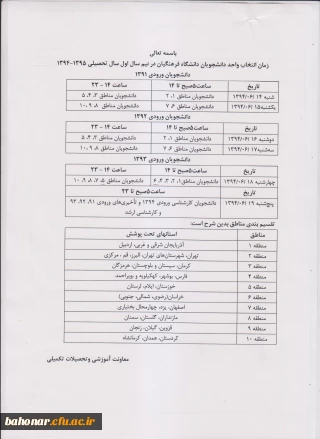 باسمه تعالی
زمان انتخاب واحد دانشجویان دانشگاه فرهنگیان در نیم سال اول سال تحصیلی ۱۳۹۵-۱۳۹۴
دانشجویان ورودی ۱۳۹۱
تاریخ ساعت ۵صبح تا ۱۴ ساعت ۱۴ - ۲۳
شنبه ۱۳۹۴/۰۶/۱۴ دانشجویان مناطق ۱، ۲ دانشجویان مناطق ۳، ۴، ۵
یکشنبه ۱۳۹۴/۰۶/۱۵ دانشجویان مناطق ۶، ۷ دانشجویان مناطق ۸، ۹، ۱۰
دانشجویان ورودی ۱۳۹۲
تاریخ ساعت ۵صبح تا ۱۴ ساعت ۱۴ - ۲۳
دوشنبه ۱۳۹۴/۰۶/۱۶ دانشجویان مناطق ۱، ۲ دانشجویان مناطق ۳، ۴، ۵
سه‌شنبه ۱۳۹۴/۰۶/۱۷ دانشجویان مناطق ۶، ۷ دانشجویان مناطق ۸، ۹، ۱۰
دانشجویان ورودی ۱۳۹۳
تاریخ ساعت ۵صبح تا ۱۴ ساعت ۱۴ - ۲۳
چهارشنبه ۱۳۹۴/۰۶/۱۸ دانشجویان مناطق ۱، ۲، ۳، ۴، ۶ دانشجویان مناطق ۵، ۷، ۸، ۹، ۱۰
ساعت ۵صبح تا ۲۳
پنج‌شنبه ۱۳۹۴/۰۶/۱۹ دانشجویان کارشناسی ورودی ۱۳۹۴ و تأخیری‌های ورودی ۹۱، ۹۲، ۹۳
و کارشناسی ارشد
تقسیم بندی مناطق بدین شرح است:
مناطق استانهای تحت پوشش
منطقه ۱ آذربایجان شرقی و غربی، اردبیل
منطقه ۲ تهران، شهرستان‌های تهران، البرز، قم، مرکزی
منطقه ۳ کرمان، سیستان و بلوچستان، هرمزگان
منطقه ۴ فارس، بوشهر، کهگیلویه و بویراحمد
منطقه ۵ خوزستان، ایلام، لرستان
منطقه ۶ خراسان(رضوی، شمالی، جنوبی)
منطقه ۷ اصفهان، یزد، چهارمحال بختیاری
منطقه ۸ مازندران، گلستان، سمنان
منطقه ۹ قزوین، گیلان، زنجان
منطقه ۱۰ کردستان، همدان، کرمانشاه
معاونت آموزشی و تحصیلات تکمیلی
bahonar.cfu.ac.ir